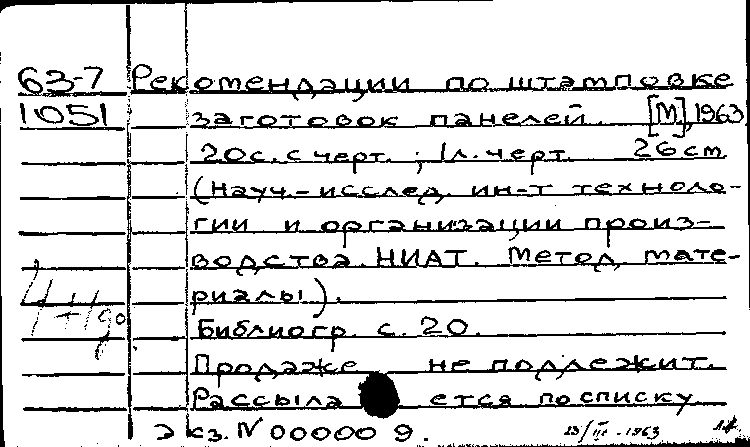 63-7 Рекомендации по штамповке
1051 заготовок панелей. [М], 1963
20с. с черт. ; 1л. черт. 26 см
(Науч.-исслед. ин-т техноло-
гии и организации произ-
водства. НИАТ. Метод. мате-
риалы).
Библиогр. с. 20.
Продаже не подлежит.
Рассылается по списку
Экз. N 00000 9. 13/III-1963